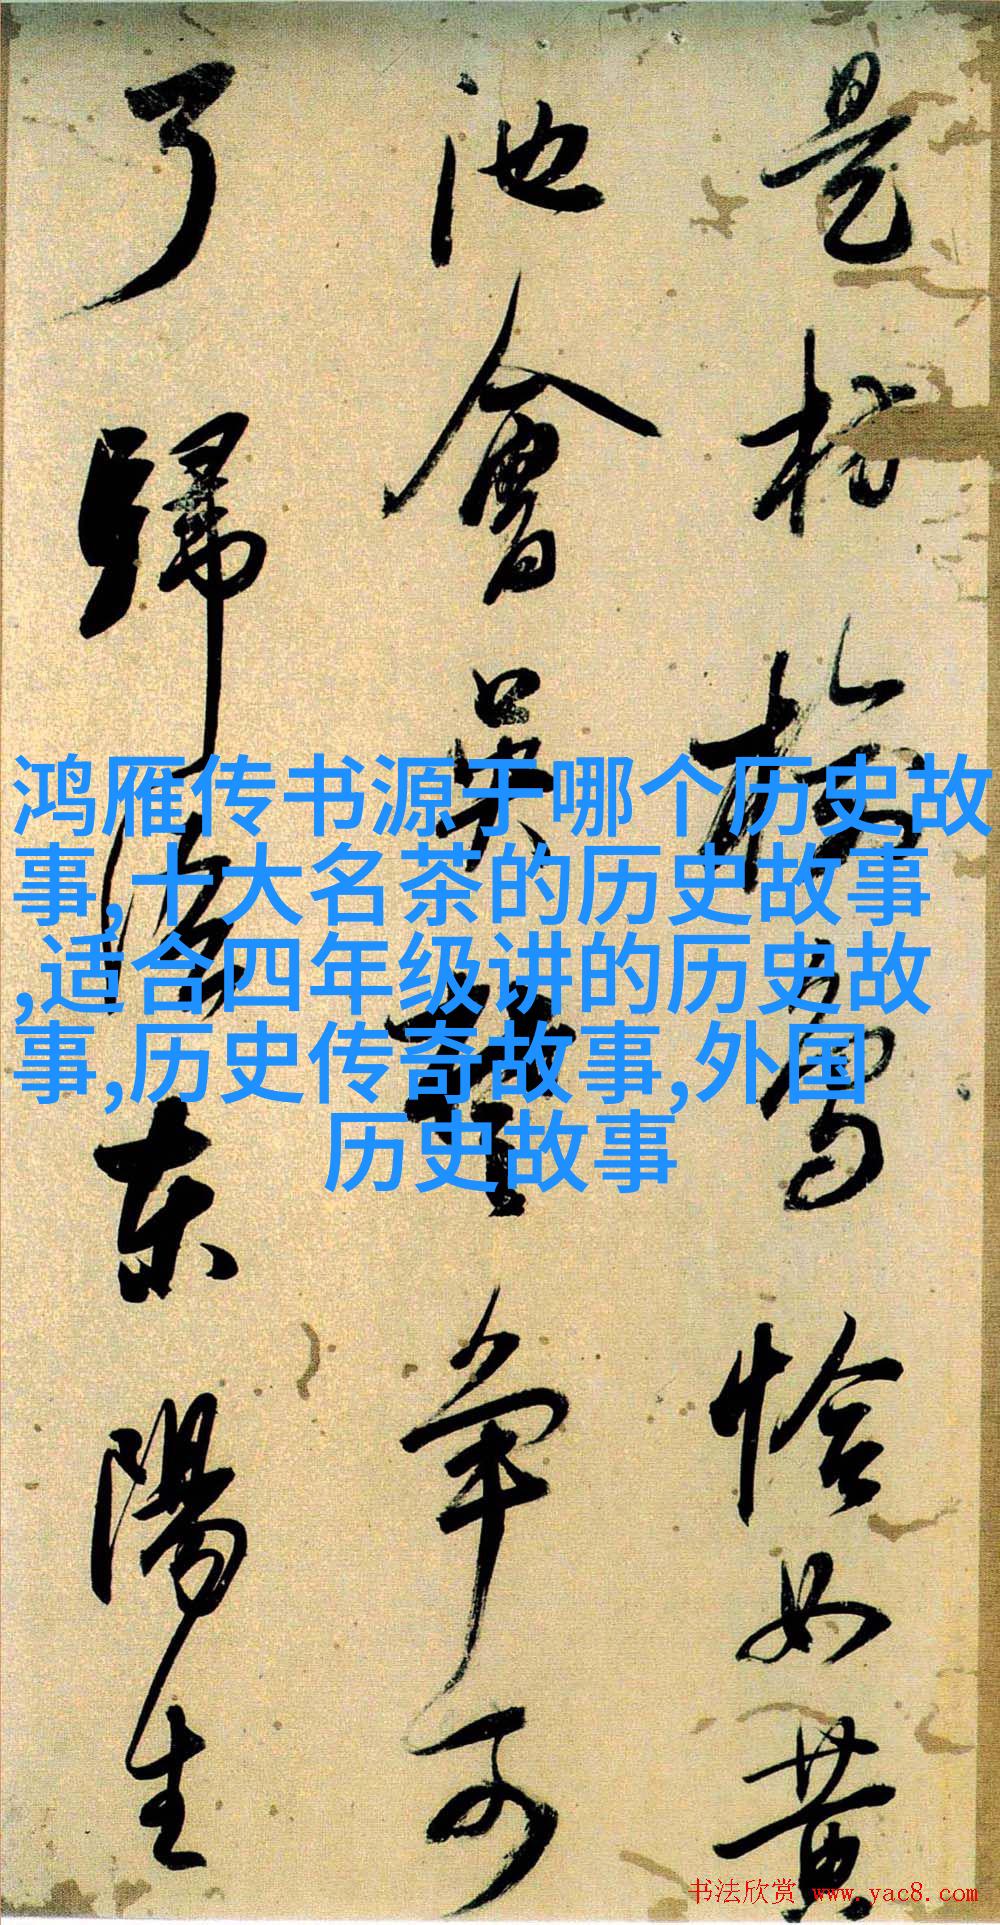 是 恰如黄
池會吳 爭可
了歸 東陽生
鸿雁传书源于哪个历史故
事,十大名茶的历史故事
,适合四年级讲的历史故
事,历史传奇故事,外国
历史故事
书法欣赏 www.yac8.com